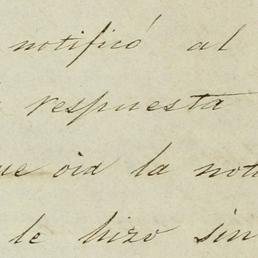 notificó al
respuesta
ue oia la not
le hizo sin